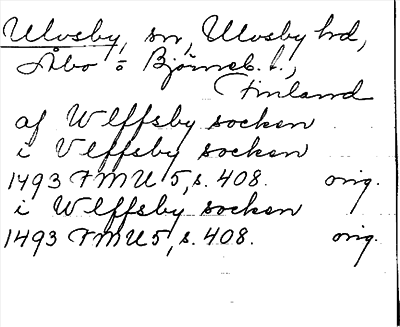 Ulvsby, sn, Ulvsby hd,
Åbo o Björneb. l.,
Finland
af Wlffsby socken
i Vlffsby socken
1493 FMU 5, s. 408. orig.
i Wlffsby socken
1493 FMU 5, s. 408. orig.